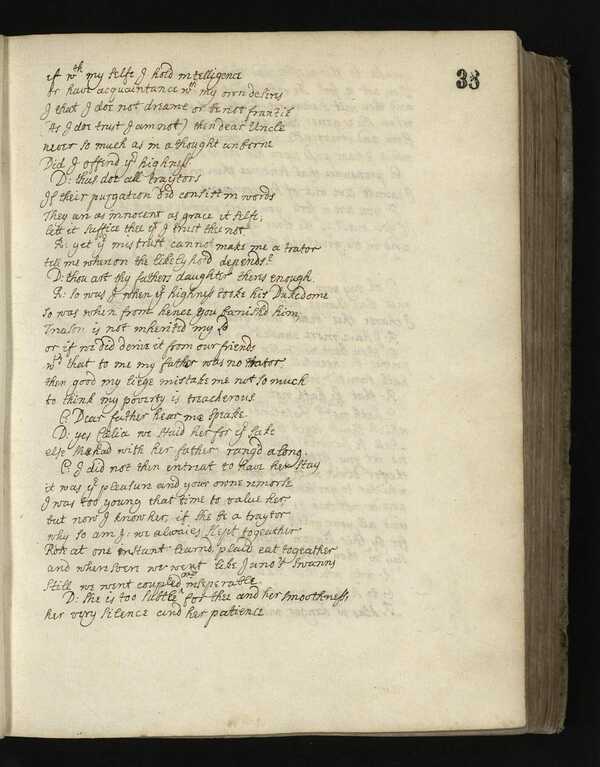 33
if wth my selfe I hold intelligence
or have acquaintance wth my own desires
I that I doe not dreame or be not frantik
(As I doe trust I am not) then dear Uncle
never so much as in a thought unborne
Did I offend yr highness
D: thus doe all traytors
If their purgation did consist in words
They are as innocent as grace it selfe,
lett it suffice thee yt I trust thee not
R: yet yr mistrust cannot make me a traitor
tell me whereon the likelyhood depends?
D: thou art thy fathers daughter theres enough.
R: so was I when yr highness tooke his Dukedome
so was when from hence you banished him,
Treason is not inherited my Ld
or if we did derive it from our friends
wts that to me my father was no traitor,
then good my liege mistake me not so much
to think my poverty is treacherous
C: Dear father hear me speake.
D: yes Cælia we staid her for yr sake
else she had with her father rang'd along.
C: I did not then entreat to have her stay
it was yr pleasure and your owne remorse
I was too young that time to value her
but now I know her, if she be a traytor
why so am I: we alwaies slept togeather
Rose at one instant learnd, plaid eat togeather
and wheresoere we went like Juno's Swanns
Still we went coupled and inseperable
D: She is too subtle for thee and her smoothness,
her very silence and her patience